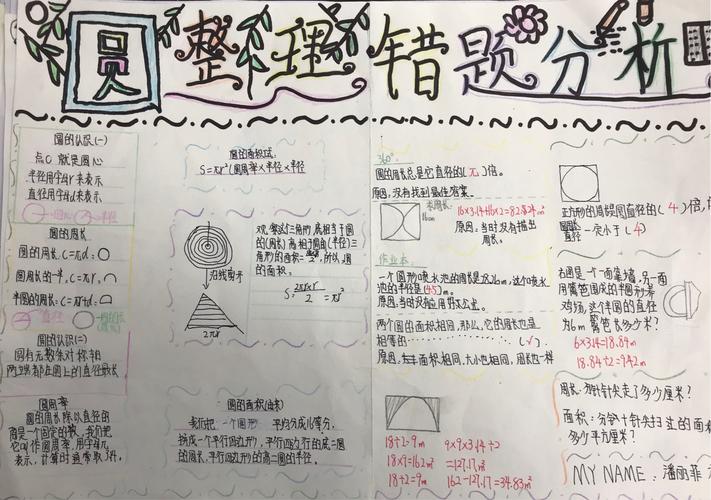 圆整理 错题分析
圆的认识(一)
点O就是圆心
半径用字母r来表示
直径用字母d来表示
圆的周长
圆的周长:C=πd:
圆周长的一半:C=πr:
半圆的周长:C=πr+d:
直径
圆的认识(二)
圆有无数条对称轴
两端都在圆上的直径最长
圆周率
圆的周长除以直径的
商是一个固定的数,我们把
它叫作圆周率,用字母π
表示,计算时通常取3.14.
圆的面积式:
S=πr²(圆周率×半径×半径
沿线剪开
2πr
观察这个三角形,底相当于圆
的(周长)高相于圆的(半径)三
角形的面积=
所以,圆
的面积.
S=2πr×r/2=πr²
圆的面积(由来)
我们把一个圆形平均分成几等分,
拼成一个平行四边形,平行四边行的底=圆
的周长,平行四边形的高=圆的半径。
360°:
圆的周长总是它直径的(π)倍。
原因:没有找到最佳答案。
求周长:
16cm
原因:当时没有描出
周长。
作业本:
一个圆形喷水池的周长是28.26m,这个喷水
池的半径是(4.5)m。
两个圆的面积相同,那么,它的周长也是
相等的…………(√)
面积相同,大小也相同,周长也一样
18÷2=9m
18×9=162m²
18÷2=9m
9×9×3.14÷2
=127.17m²
162-127.17=34.83m²
正方形的周长是圆直径的(4)倍,
直径一定小于(4)
右图是一面靠墙,另一面
用篱笆围成的半圆形养
鸡场,这个半圆的直径
为6m,篱笆长多少米?
6×3.14=18.84m
18.84÷2=9.42m
周长:分针针尖走了多少厘米?
面积:分针针尖扫过的面积
多少平方厘米?
MY NAME:潘丽菲